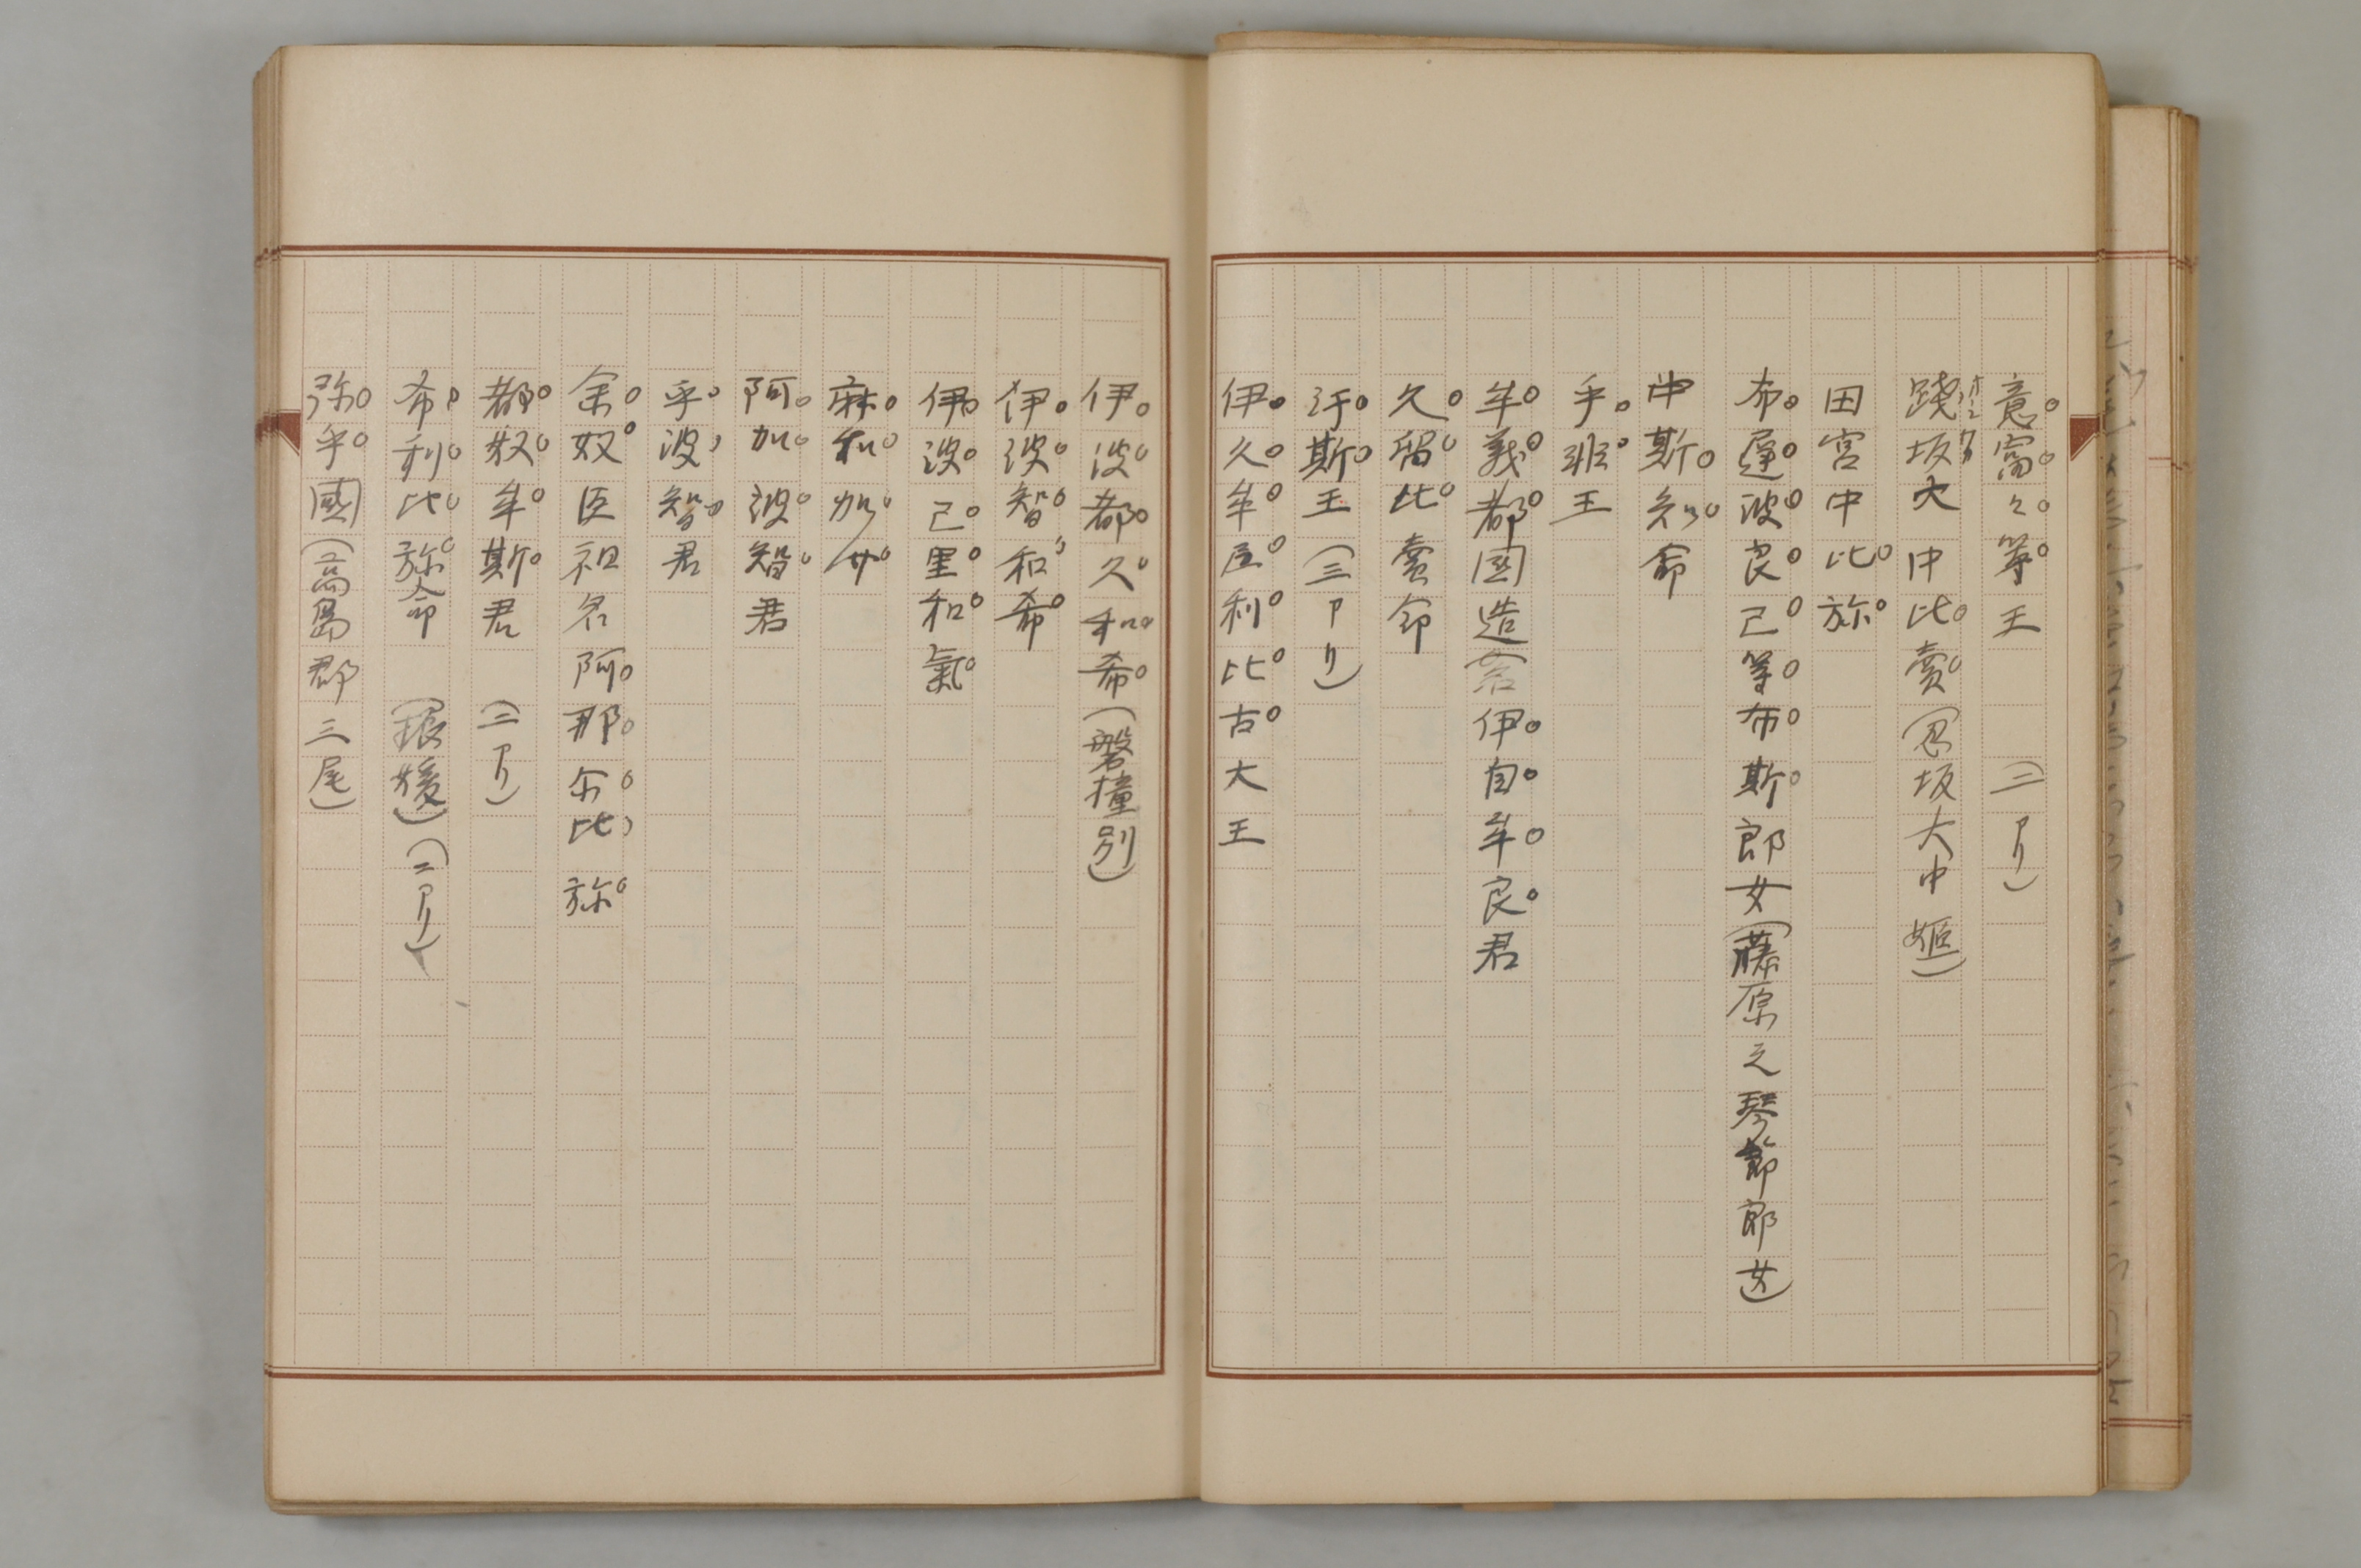 意富々等王 (二アリ)
踐坂大中比賣(忍坂大中姫)
田宮中比弥
布遅波良己等布斯郎女(藤原之琴節郎女)
中斯知命
乎非王
牟義都國造名伊自牟良君
久留比賣命
汙斯王(三アリ)
伊久牟尼利比古大王
伊波都久和希(磐撞別)
伊波智和希
伊波己里和氣
麻和加介
阿加波智君
乎波智君
余奴臣祖名阿那尓比弥
都奴牟斯君 (二アリ)
布利比弥命 (振媛)(二アリ)
弥乎國(高島郡三尾)